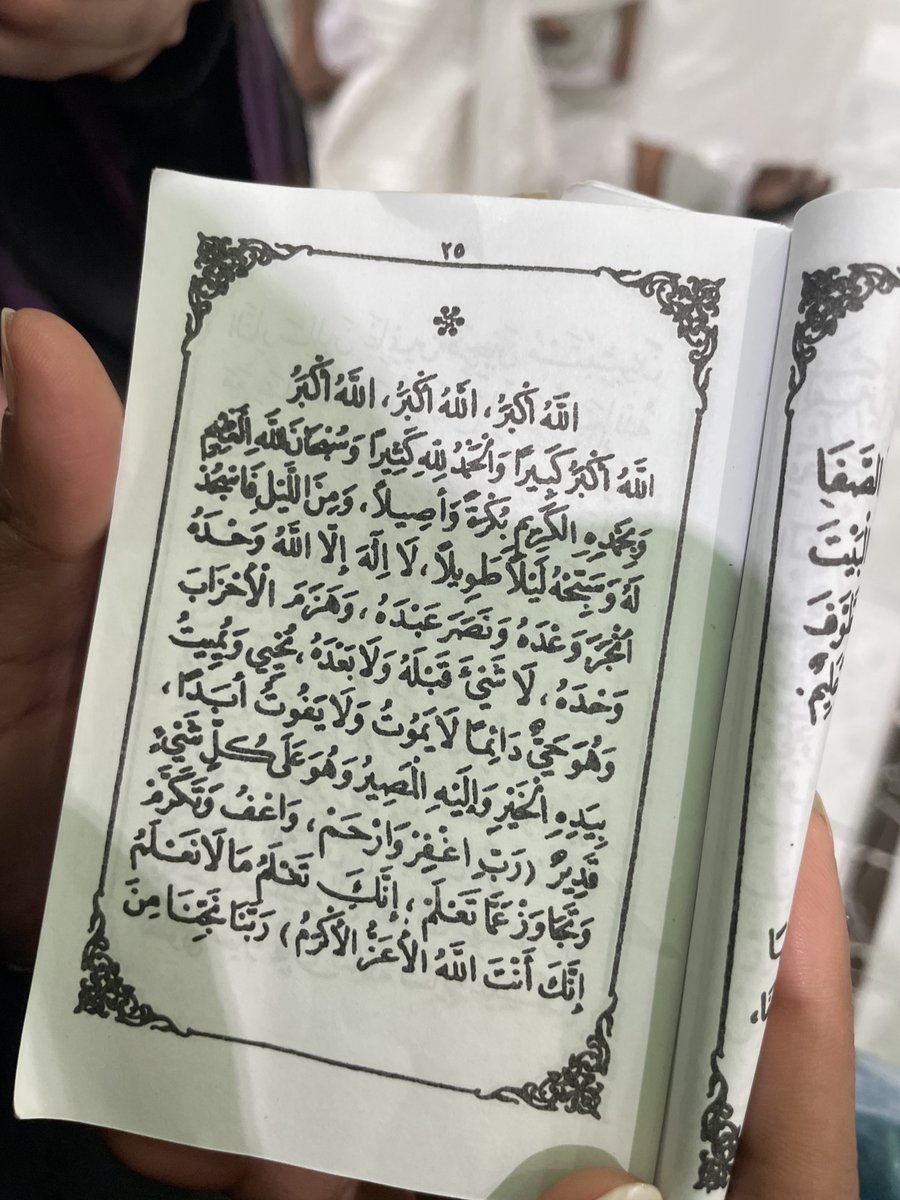 ٢٥
اللّٰهُ اَكْبَرُ، اللّٰهُ اَكْبَرُ، اللّٰهُ اَكْبَرُ
اللّٰهُ اَكْبَرُ كَبِيرًا وَالْحَمْدُ لِلّٰهِ كَثِيرًا وَسُبْحَانَ اللّٰهِ الْعَظِيمِ
وَبِحَمْدِهِ الْكَرِيمِ بُكْرَةً وَأَصِيلاً، وَمِنَ اللَّيْلِ فَاسْجُدْ
لَهُ وَسَبِّحْهُ لَيْلاً طَوِيلاً، لَا اِلٰهَ اِلَّا اللّٰهُ وَحْدَهُ
اَنْجَزَ وَعْدَهُ وَنَصَرَ عَبْدَهُ، وَهَزَمَ الْأَحْزَابَ
وَحْدَهُ، لَا شَيْءَ قَبْلَهُ وَلَا بَعْدَهُ، يُحْيِي وَيُمِيتُ
وَهُوَ حَيٌّ دَائِمًا لَا يَمُوتُ وَلَا يَفُوتُ أَبَدًا،
بِيَدِهِ الْخَيْرُ وَإِلَيْهِ الْمَصِيرُ وَهُوَ عَلَى كُلِّ شَيْءٍ
قَدِيرٌ (رَبِّ اغْفِرْ وَارْحَمْ، وَاعْفُ وَتَكَرَّمْ
وَتَجَاوَزْ عَمَّا تَعْلَمْ، إِنَّكَ تَعْلَمُ مَا لَا نَعْلَمُ
إِنَّكَ أَنْتَ اللّٰهُ الْأَعَزُّ الْأَكْرَمُ) رَبَّنَا نَجِّنَا مِنَ
الصَّفَا
الْبَيْتَ